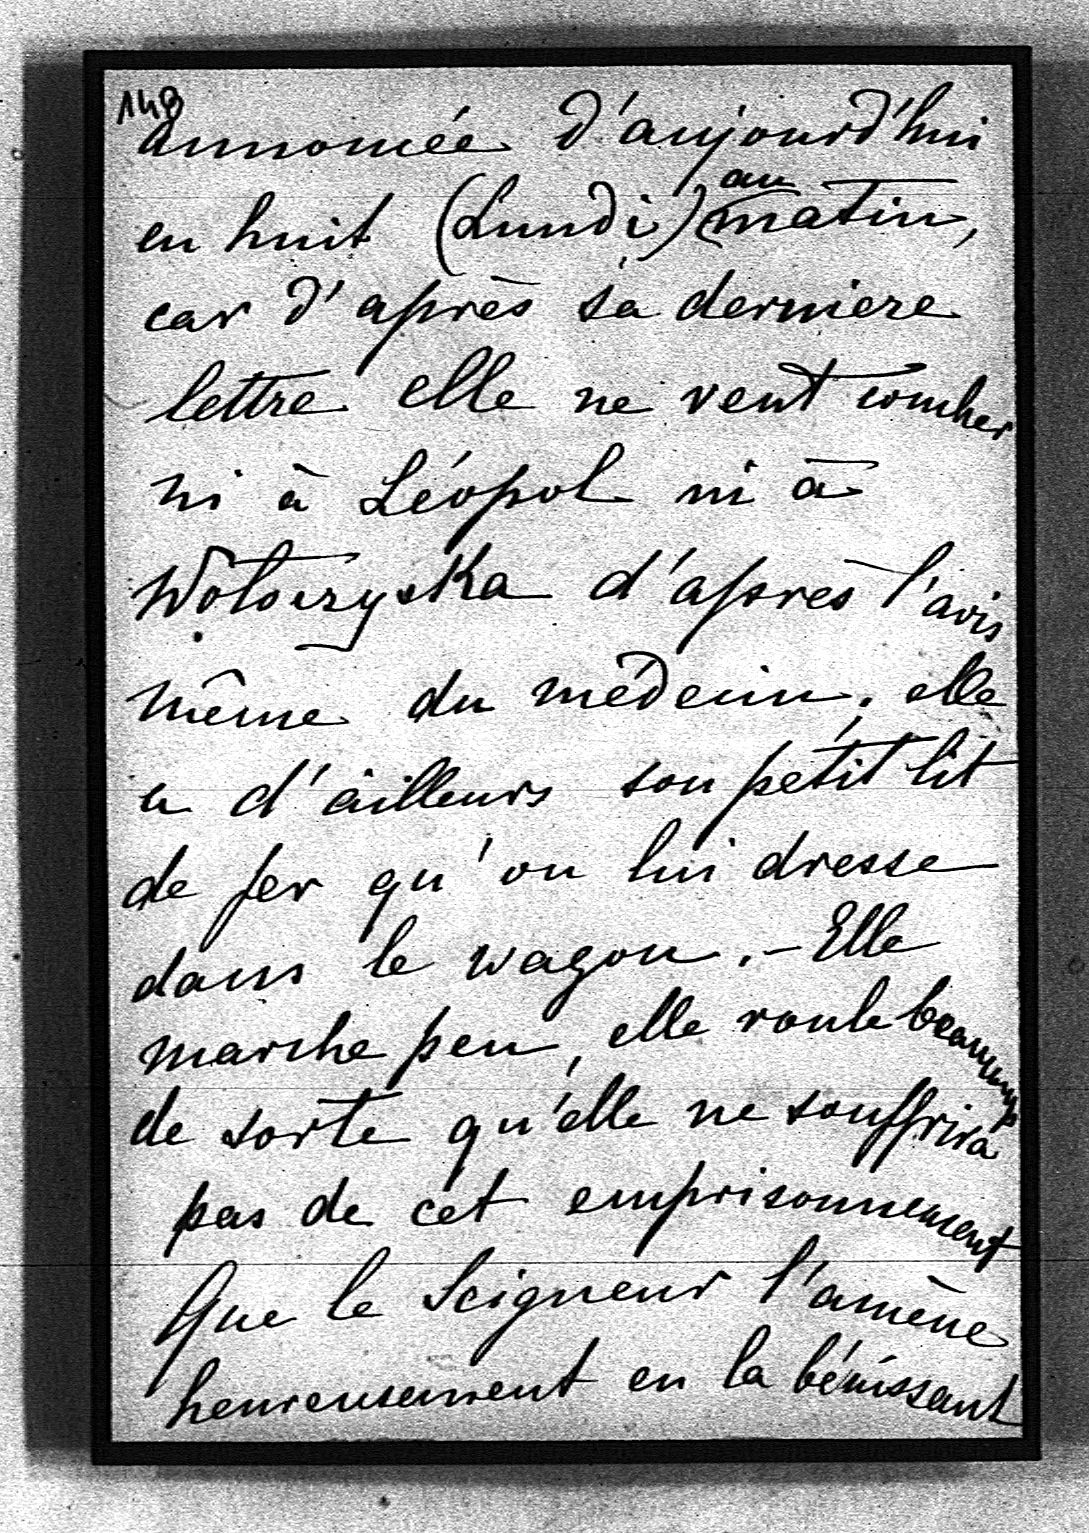 148
annoncée d'aujourd'hui
en huit (Lundi) au matin,
car d'après sa derniere
lettre elle ne veut coucher
ni à Léopol ni à
Wołoczyska d'après l'avis
même du médecin, elle
a d'ailleurs son petit lit
de fer qu'on lui dresse
dans le wagon. - Elle
marche peu, elle roule beaucoup
de sorte qu'elle ne souffrira
pas de cet emprisonnement
Que le Seigneur l'amène
heureusement en la bénissant